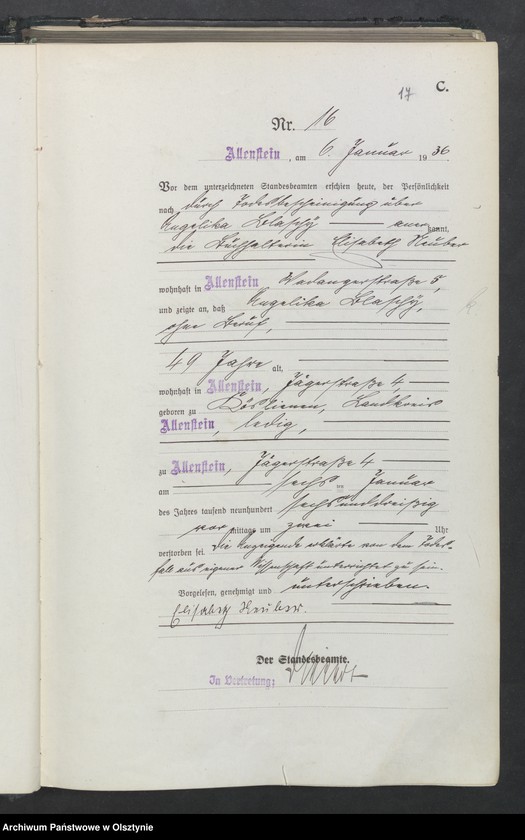 17
C.
Nr. 16
Allenstein, am 6. Januar 1936
Vor dem unterzeichneten Standesbeamten erschien heute, der Persönlichkeit
nach durch Todesbescheinigung über
Angelika Blaschy anerkannt,
die Buchhalterin Elisabeth Neuber
wohnhaft in Allenstein, Wadangerstraße 5,
und zeigte an, daß Angelika Blaschy,
ohne Beruf,
49 Jahre alt,
wohnhaft in Allenstein, Jägerstraße 4
geboren zu Landkreis
Allenstein, ledig,
zu Allenstein, Jägerstraße 4
am sechs ten Januar
des Jahres tausend neunhundert sechsunddreißig
vor mittags um zwei Uhr
verstorben sei. Die Anzeigende erklärte von dem Todes-
fall aus eigener Wissenschaft unterrichtet zu sein.
Vorgelesen, genehmigt und unterschrieben.
Elisabeth Neuber.
Der Standesbeamte.
In Vertretung:
Archiwum Państwowe w Olsztynie